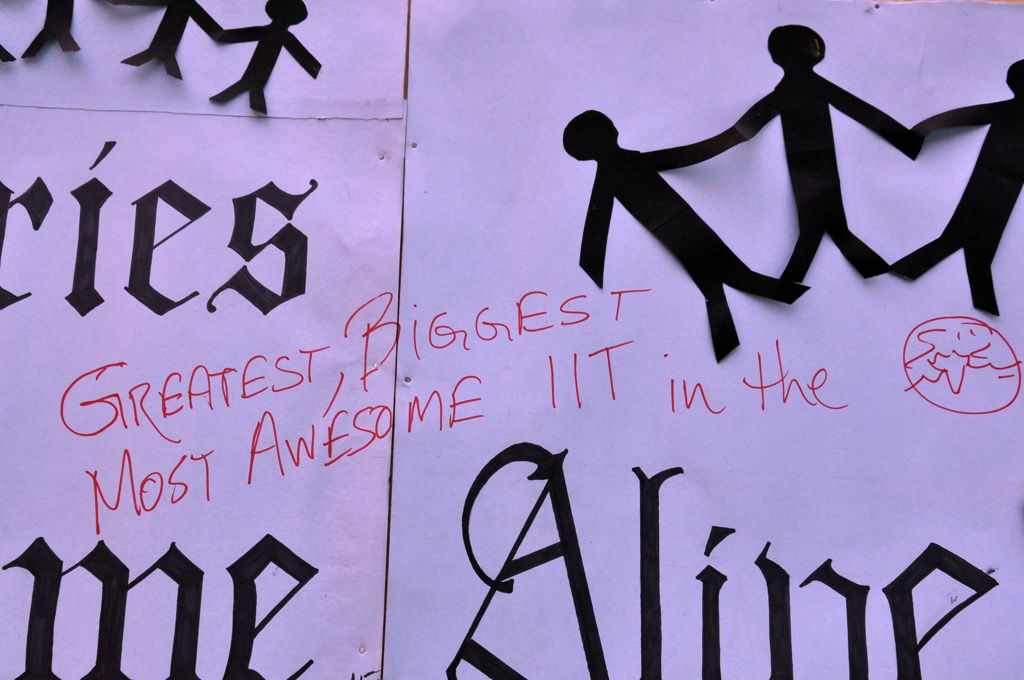 ries
GREATEST, BIGGEST
MOST AWESOME IIT in the
me Alive